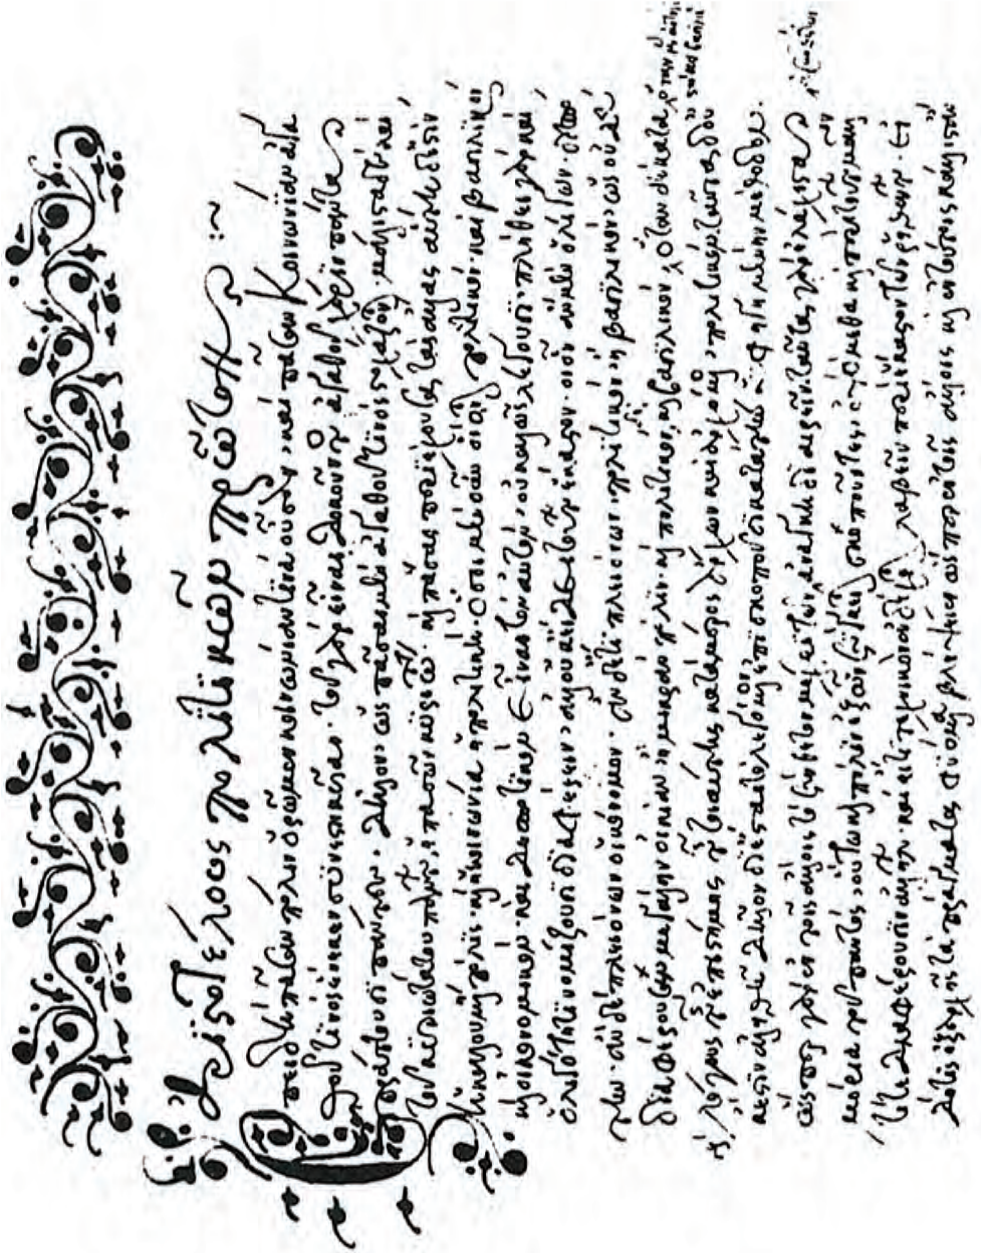 Ἀριστοτέλους πολιτικῶν πρῶτον
Ἐπειδὴ πᾶσαν πόλιν ὁρῶμεν κοινωνίαν τινὰ οὖσαν, καὶ πᾶσαν κοινωνίαν ἀγα
θοῦ τινὸς ἕνεκεν συνεστηκυῖαν. τοῦ γὰρ εἶναι δοκοῦντος ἀγαθοῦ χάριν πάντα
πράττουσι πάντες. δῆλον ὡς πᾶσαι μὲν ἀγαθοῦ τινὸς στοχάζονται. μάλιστα δὲ καὶ
τοῦ κυριωτάτου πάντων, ἡ πασῶν κυριωτάτη καὶ πάσας περιέχουσα τὰς ἄλλας. αὕτη δ' ἐστὶν
ἡ καλουμένη πόλις καὶ ἡ κοινωνία ἡ πολιτική. ὅσοι μὲν οὖν οἴονται πολιτικὸν καὶ βασιλικὸν
καὶ οἰκονομικὸν καὶ δεσποτικὸν εἶναι τὸν αὐτὸν, οὐ καλῶς λέγουσι. πλήθει γὰρ καὶ
ὀλιγότητι νομίζουσι διαφέρειν, ἀλλ' οὐκ εἴδει τούτων ἕκαστον. οἷον ἂν μὲν ὀλίγων, δεσπό
την. ἂν δὲ πλειόνων οἰκονόμον. ἂν δ' ἔτι πλειόνων, πολιτικὸν ἢ βασιλικόν. ὡς οὐδὲν
διαφέρουσαν μεγάλην οἰκίαν ἢ μικρὰν πόλιν. καὶ πολιτικὸν καὶ βασιλικὸν, ὅταν δὲ κατὰ
τοὺς λόγους τῆς ἐπιστήμης τῆς τοιαύτης κατὰ μέρος ἄρχων καὶ ἀρχόμενος, πολιτικόν. ταῦτα δ' οὐκ
ἔστιν ἀληθῆ. δῆλον δ' ἔσται τὸ λεγόμενον ἐπισκοποῦσι κατὰ τὴν ὑφηγημένην μέθοδον.
ὥσπερ γὰρ ἐν τοῖς ἄλλοις τὸ σύνθετον μέχρι τῶν ἀσυνθέτων ἀνάγκη διαιρεῖν ταῦτα γὰρ ἐλάχιστα
μόρια τοῦ παντὸς, οὕτω καὶ πόλιν ἐξ ὧν σύγκειται σκοποῦντες, ὀψόμεθα καὶ περὶ τούτων μᾶλλον,
τί τε διαφέρουσιν ἀλλήλων. καὶ εἴ τι τεχνικὸν ἐνδέχεται λαβεῖν περὶ ἕκαστον τῶν ῥηθέντων. εἰ
δή τις ἐξ ἀρχῆς τὰ πράγματα φυόμενα βλέψειεν ὥσπερ ἐν τοῖς ἄλλοις καὶ ἐν τούτοις κάλλιστ' ἂν